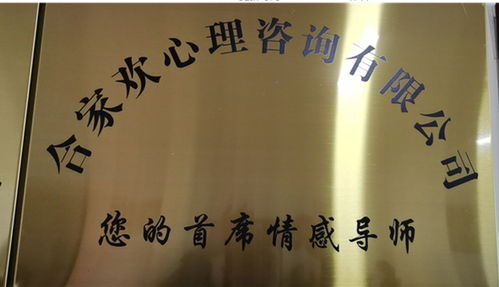 合家欢心理咨询有限公司
您的首席情感导师